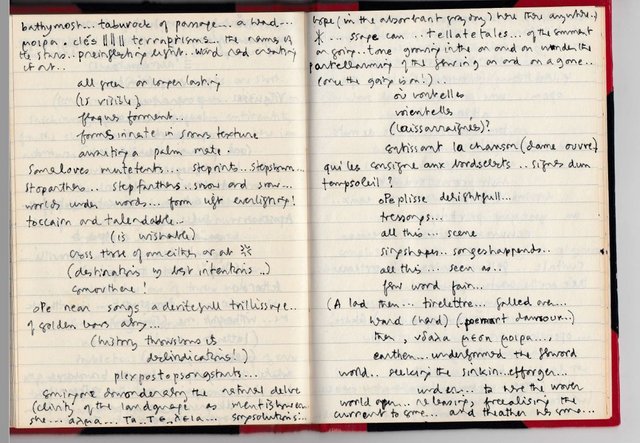 bathymost... taburock of passage... a head...
μοιρα. clés |||| terraprisms... the names of
the stars.. preinflecting light.. word ned creating
it out..
all green on longer lasting
(is visible)
plaques forment..
forms innate in sonus texture
awaiting a palm mate
someloves mutetents... stepnints.. stepstown...
stopanthers... stepfanthers.. snow and snow...
worlds under words... form left everlighting!
toccain and talendable..
(is wishable)
cross those of one either or at
(destinations by best intentions..)
somewthere!
ope near songs a deritefull trillissage..
of golden bars a by...
(history thrownsons is
deslindications!)
plexpostopsongstants...
emingone downondering the natural delve
(clarity of the landguage as mentis
she... αλμα... Τα. Τε. λεια... songsolutions...
hope (in the absorbant gray day) here there anywhere..)
... ssage can .. tellatetales... of the summent
on going.. tone growing in the on and on wonder the
of the flaring on and on a gone..
(once the gate is on!)...
où vontelles
voientelles
(laissarraignés)?
entissant la chanson (dame ouvre)
qui les consigne aux bordselets.. signes d'un
tempsoleil?
opeplisse delightfull...
tressongs...
all this... scene
singshapes.. songeshappends..
all this... seen as..
few word fain...
(A lad then... tirelettre.. falled over...
ward (hard) (permant damour...)
then, υδαλα μεση μοιρα...,
earthen... underformed the foword
world.. seeking the sinkin.. efforger...
under... to have the woven
world open.. releasing, freealising the
current to some... and theather as some...